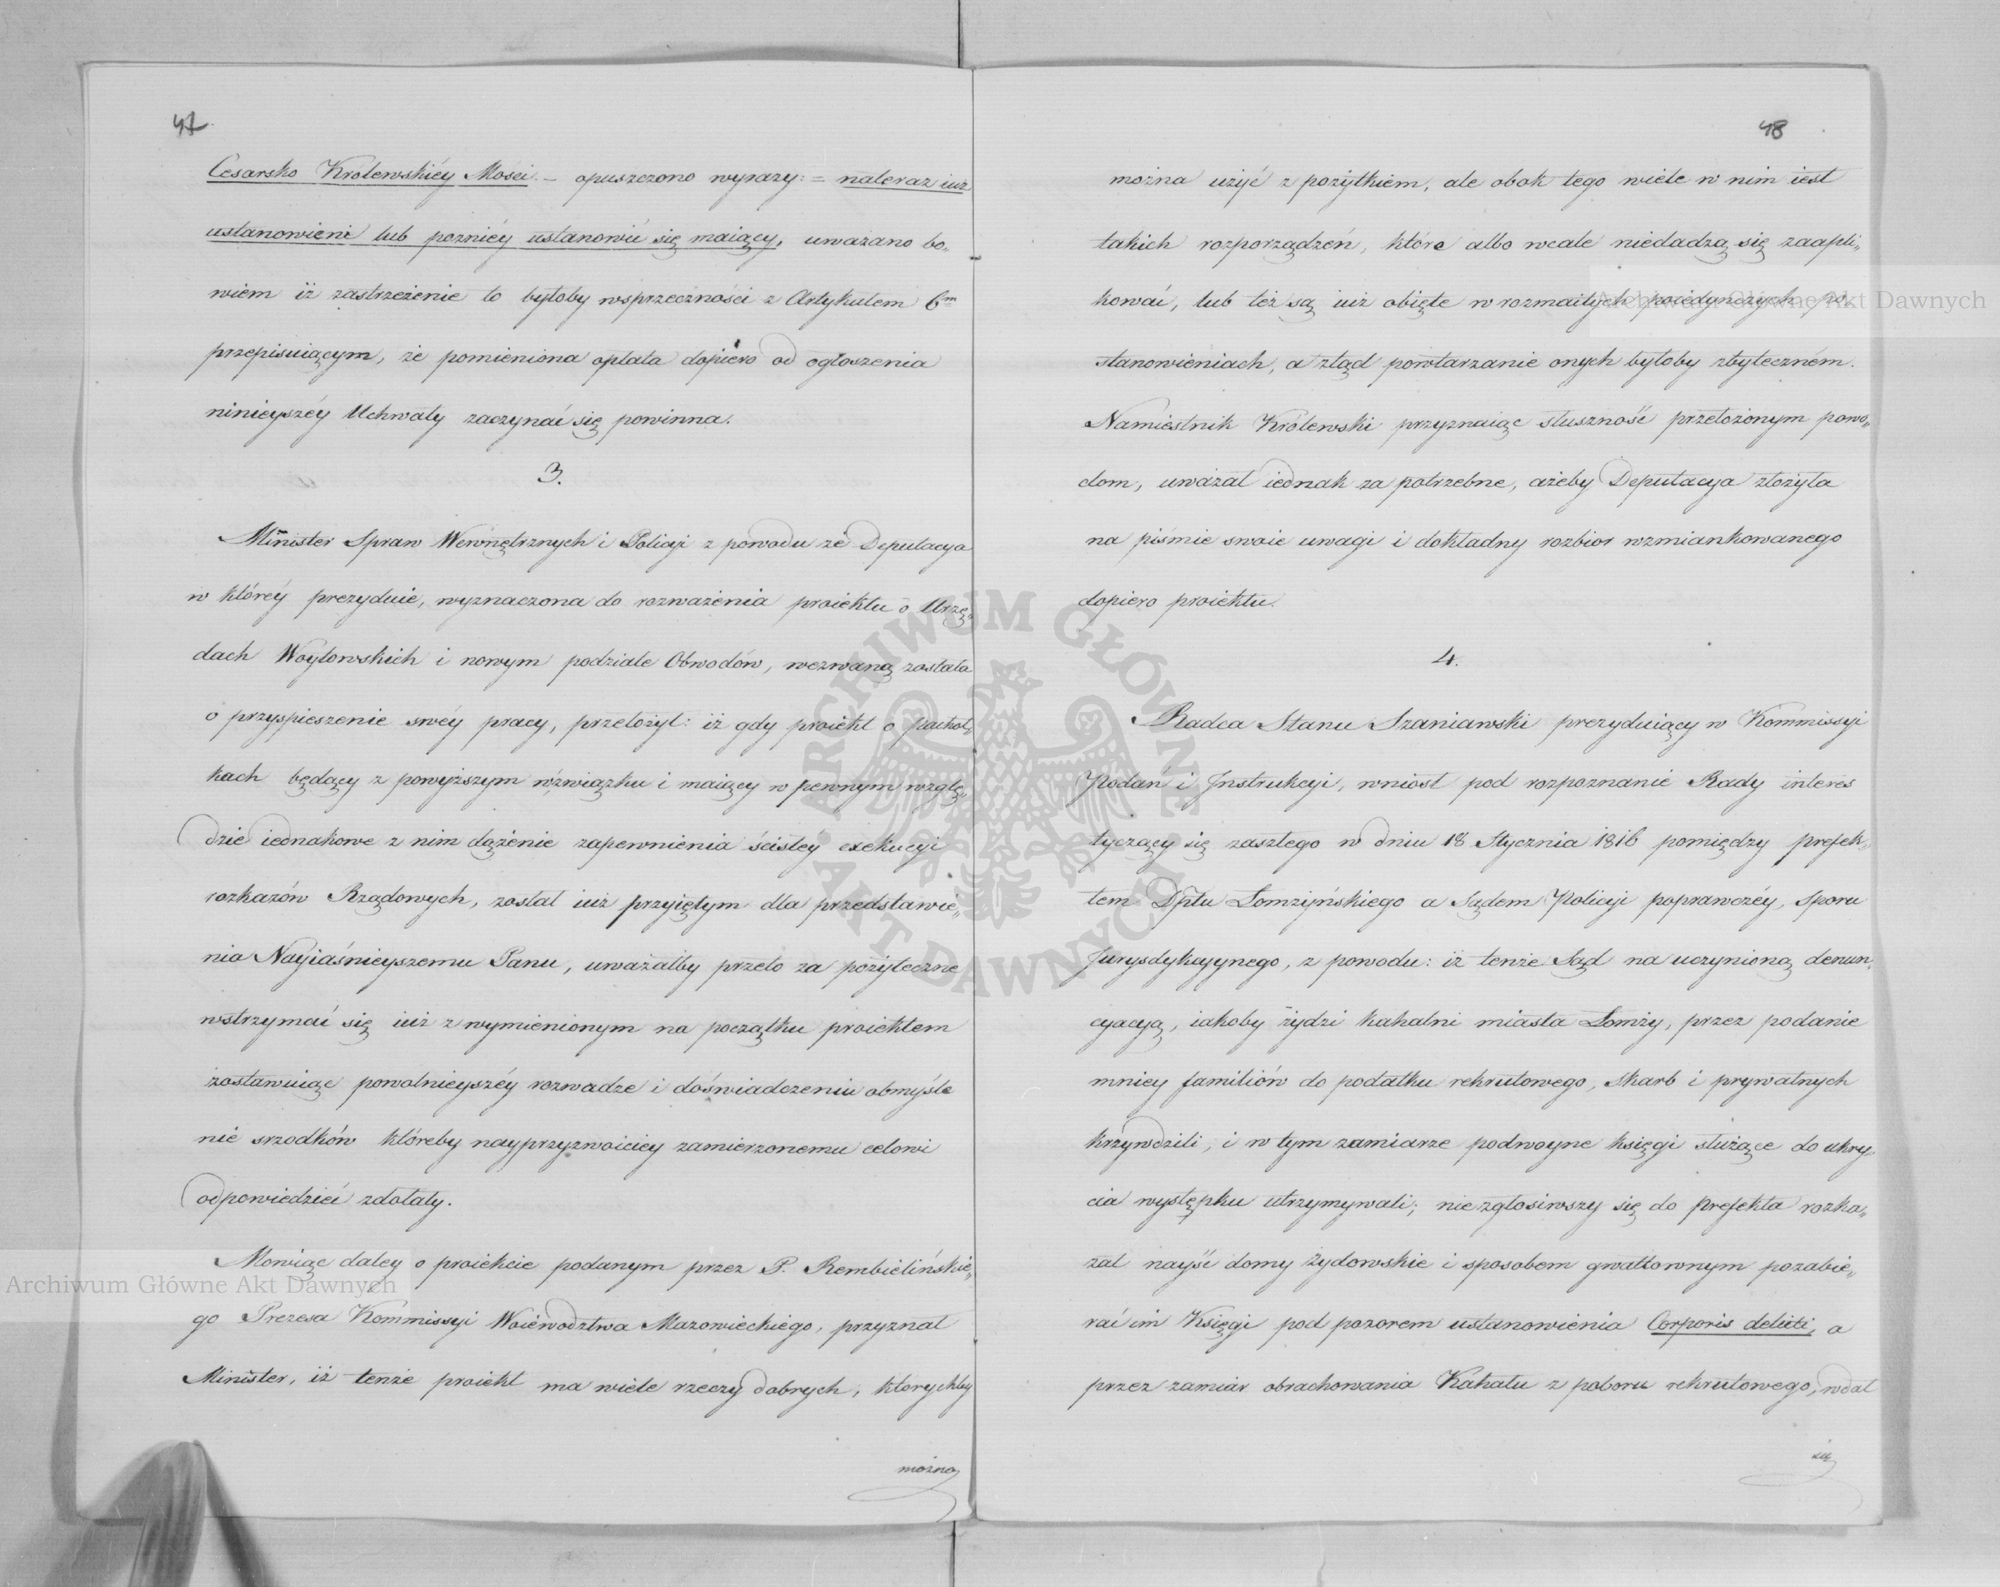 47.
Cesarsko Królewskiéy Mości. – opuszczono wyrazy: = nateraz iuż
ustanowieni lub pozniéy ustanowić się maiący, uważano bo„
wiem iż zastrzeżenie to byłoby wsprzeczności z Artykułem 6m
przepisuiącym, że pomieniona opłata dopiero od ogłoszenia
ninieyszéy Uchwały zaczynać się powinna.
3.
Minister Spraw Wewnętrznych i Policyi z powodu że Deputacya
w któréy prezyduie, wyznaczona do rozważenia proiektu o Urzę„
dach Woytowskich i nowym podziale Obwodów, wezwaną została
o przyspieszenie swéy pracy, przełożył: iż gdy proiekt o pachoł„
kach będący z powyższym wzwiązku i maiący w pewnym wzglę„
dzie iednakowe z nim dążenie zapewnienia ścisłey exekucyi
rozkazów Rządowych, został iuż przyiętym dla przedstawie„
nia Nayiaśnieyszemu Panu, uważałby przeto za pożyteczne
wstrzymać się iuż z wymienionym na początku proiektem
zostawuiąc powolnieyszéy rozwadze i doświadczeniu obmyśle
nie srzodków któreby nayprzyzwoiciey zamierzonemu celowi
odpowiedzieć zdołały.
Mowiąc daley o proiekcie podanym przez P. Rembielińskie„
go Prezesa Kommissyi Woiewodztwa Mazowieckiego, przyznał
Minister, iż tenże proiekt ma wiele rzeczy dobrych, ktorychby
można
48
można użyć z pożytkiem, ale obok tego wiele w nim iest
takich rozporządzeń, które albo wcale niedadzą się zaapli„
kować, lub też są iuż obięte w rozmaitych poiedynczych po„
stanowieniach, a ztąd powtarzanie onych byłoby zbyteczném.
Namiestnik Królewski przyznaiąc słuszność przełożonym powo„
dom, uważał iednak za potrzebne, ażeby Deputacya złożyła
na piśmie swoie uwagi i dokładny rozbior wzmiankowanego
dopiero proiektu.
4.
Radca Stanu Szaniawski prezyduiący w Kommissyi
Podań i Instrukcyi, wniosł pod rozpoznanie Rady interes
tyczący się zaszłego w dniu 18 Stycznia 1816 pomiędzy prefek„
tem Dptu Łomżyńskiego a Sądem Policyi poprawczéy, Sporu
Jurysdykcyynego, z powodu: iż tenże Sąd na uczynioną denun„
cyacyą, iakoby żydzi kahalni miasta Łomży, przez podanie
mniey familiów do podatku rekrutowego, Skarb i prywatnych
krzywdzili, i w tym zamiarze podwoyne księgi służące do ukry„
cia występku utrzymywali; nie zgłosiwszy się do Prefekta rozka„
zał nayść domy żydowskie i sposobem gwałtownym pozabie„
rać im Księgi pod pozorem ustanowienia Corporis delicti, a
przez zamiar obrachowania Kahału z poboru rekrutowego, wdał
się
Archiwum Główne Akt Dawnych
Archiwum Główne Akt Dawnych
ARCHIWUM GŁÓWNE AKT DAWNYCH